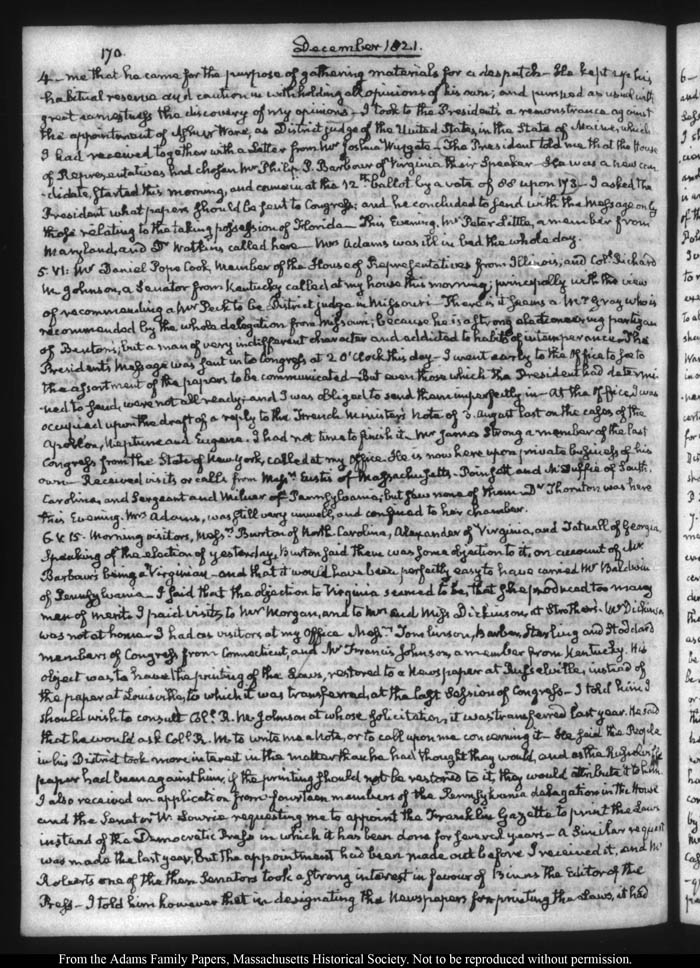 170.
December 1821.
4— me that he came for the purpose of gathering materials for a despatch— He kept up his
habitual reserve and caution in withholding all opinions of his own; and pursued as usual with
great earnestness the discovery of my opinions— I took to the President a remonstrance against
the appointment of Ashur Ware, as District judge of the United States in the State of Maine, which
I had received together with a Letter from Mr Joshua Wingate— The President told me that the House
of Representatives had chosen Mr Philip P. Barbour of Virginia their Speaker— He was a new can
didate, started this morning, and came in at the 12th ballot by a vote of 88 upon 173— I asked the
President what papers should be sent to Congress; and he concluded to send with the Message only
those relating to the taking possession of Florida— This Evening, Mr Peter Little, a member from
Maryland, and Dr Watkins called here— Mrs Adams was ill in bed the whole day.
5. VI: Mr Daniel Pope Cook, Member of the House of Representatives from Illinois, and Coll. Richard
M. Johnson, a Senator from Kentucky called at my house this morning; principally with the view
of recommending a Mr Peck to be District judge in Missouri— There is it seems a Mr Gray who is
recommended by the whole delegation from Missouri; because he is a strong electioneering partizan
of Benton's; but a man of very indifferent character and addicted to habits of intemperance. The
President's Message was sent in to Congress at 2 O'Clock this day— I went early to the Office to see to
the assortment of the papers to be communicated— But even those which the President had determi
ned to send, were not all ready; and I was obliged to send them imperfectly in— At the Office I was
occupied upon the draft of a reply to the French Minister's Note of 3. August last on the cases of the
Apollon, Neptune and Eugene. I had not time to finish it. Mr James Strong a member of the last
Congress from the State of New York, called at my Office. He is now here upon private business of his
own— Received visits or calls from Messrs Eustis of Massachusetts— Poinsett and McDuffie of South
Carolina, and Sergeant and Milnor of Pennsylvania; but saw none of them. Dr Thornton was here
this Evening. Mrs Adams, was still very unwell, and confined to her chamber.
6. V. 15. Morning visitors, Messrs Burton of North-Carolina, Alexander of Virginia, and Tatnall of Georgia.
Speaking of the election of yesterday, Burton said there was some objection to it, on account of Mr
Barbour's being a Virginian— and that it would have been perfectly easy to have carried Mr Baldwin
of Pennsylvania— I said that the objection to Virginia seemed to be, that she produced too many
men of merit. I paid visits to Mr Morgan, and to Mr and Miss Dickinson, at Strother's. Mr Dickinson
was not at home— I had as visitors at my Office Messrs Tomlinson, Barber, Sterling and Stoddard
members of Congress from Connecticut, and Mr Francis Johnson, a member from Kentucky. His
object was to have the printing of the Laws, restored to a Newspaper at Russelville, instead of
the paper at Louisville, to which it was transferred, at the last Session of Congress— I told him I
should wish to consult Coll. R. M. Johnson at whose solicitation, it was transferred last year. He said
that he would ask Coll. R. M. to write me a Note, or to call upon me concerning it— He said the People
in his District took more interest in the matter than he had thought they would, and as the Russelville
paper had been against him, if the printing should not be restored to it, they would attribute it to him.
I also received an application from fourteen members of the Pennsylvania delegation in the House
and the Senator W. Lowrie requesting me to appoint the Franklin Gazette to print the Laws
instead of the Democratic Press in which it has been done for several years— A similar request
was made the last year, but the appointment had been made out before I received it, and Mr
Roberts one of the then Senators took a strong interest in favour of Binns the Editor of the
Press— I told him however that in designating the Newspapers for printing the Laws, it had
From the Adams Family Papers, Massachusetts Historical Society. Not to be reproduced without permission.